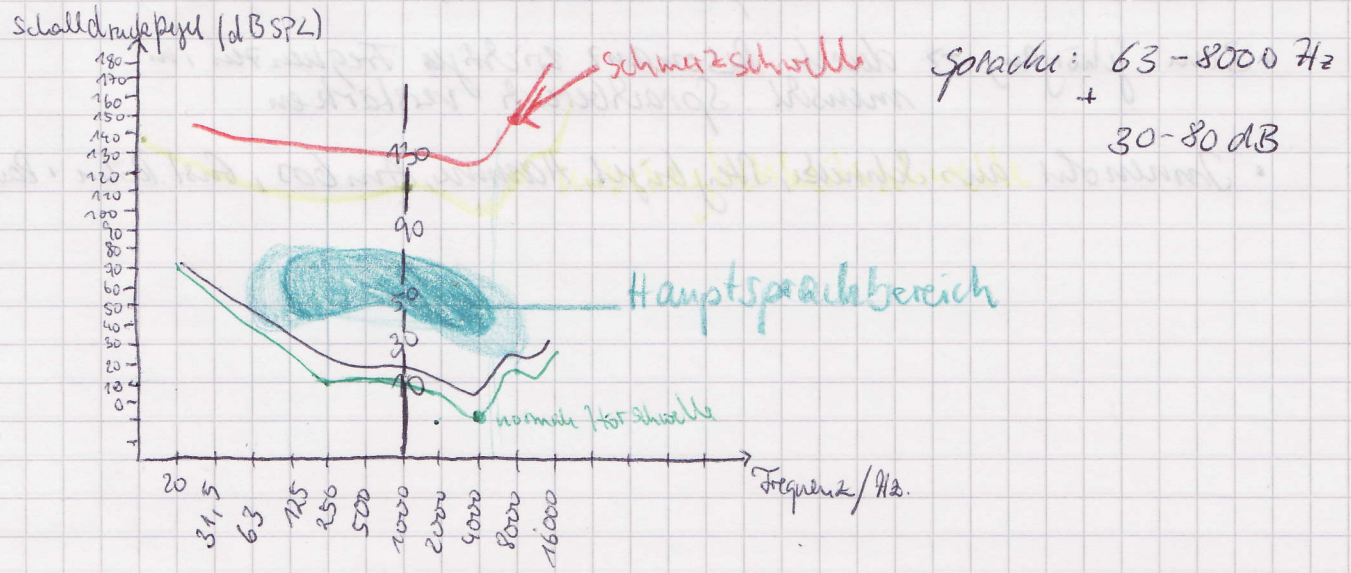 Schalldruckpegel (dB SPL)
180
170
160
150
140
130
120
110
100
90
80
70
60
50
40
30
20
10
0
130
90
50
30
10
Schmerzschwelle
Sprache: 63-8000 Hz
+
30-80 dB
Hauptsprachbereich
normale Hörschwelle
20
31,5
63
125
250
500
1000
2000
4000
8000
16000
Frequenz/Hz.